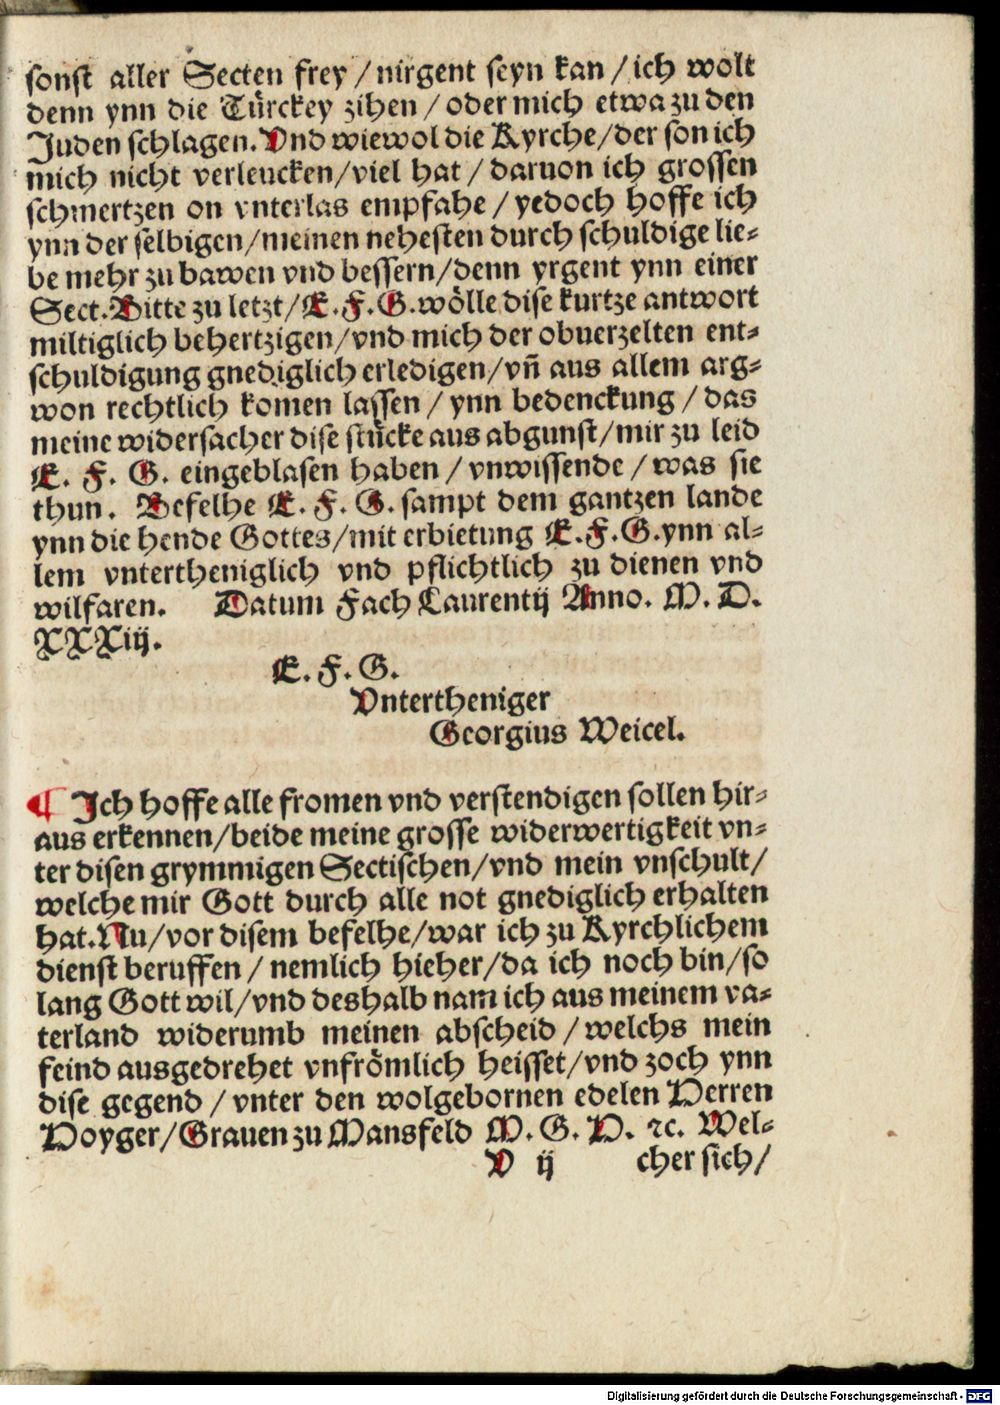 sonst aller Secten frey / nirgent seyn kan / ich wolt
denn ynn die Türckey zihen / oder mich etwa zu den
Juden schlagen. Vnd wiewol die Kyrche / der son ich
mich nicht verleucken / viel hat / daruon ich grossen
schmertzen on vnterlas empfahe / yedoch hoffe ich
ynn der selbigen / meinen nehesten durch schuldige lie-
be mehr zu bawen vnd bessern / denn yrgent ynn einer
Sect. Bitte zu letzt / E. F. G. wölle dise kurtze antwort
miltiglich behertzigen / vnd mich der obuerzelten ent-
schuldigung gnediglich erledigen / vñ aus allem arg-
won rechtlich komen lassen / ynn bedenckung / das
meine widersacher dise stücke aus abgunst / mir zu leid
E. F. G. eingeblasen haben / vnwissende / was sie
thun. Befelhe E. F. G. sampt dem gantzen lande
ynn die hende Gottes / mit erbietung E. F. G. ynn al-
lem vntertheniglich vnd pflichtlich zu dienen vnd
wilfaren. Datum Fach Laurentij Anno. M. D.
XXXiij.
E. F. G.
Vntertheniger
Georgius Weicel.
¶ Ich hoffe alle fromen vnd verstendigen sollen hir-
aus erkennen / beide meine grosse widerwertigkeit vn-
ter disen grymmigen Sectischen / vnd mein vnschult /
welche mir Gott durch alle not gnediglich erhalten
hat. Nu / vor disem befelhe / war ich zu Kyrchlichem
dienst beruffen / nemlich hieher / da ich noch bin / so
lang Gott wil / vnd deshalb nam ich aus meinem va-
terland widerumb meinen abscheid / welchs mein
feind ausgedrehet vnfrömlich heisset / vnd zoch ynn
dise gegend / vnter den wolgebornen edelen Herren
Hoyger / Grauen zu Mansfeld M. G. H. ꝛc. Wel-
D ij cher sich /
Digitalisierung gefördert durch die Deutsche Forschungsgemeinschaft - DFG